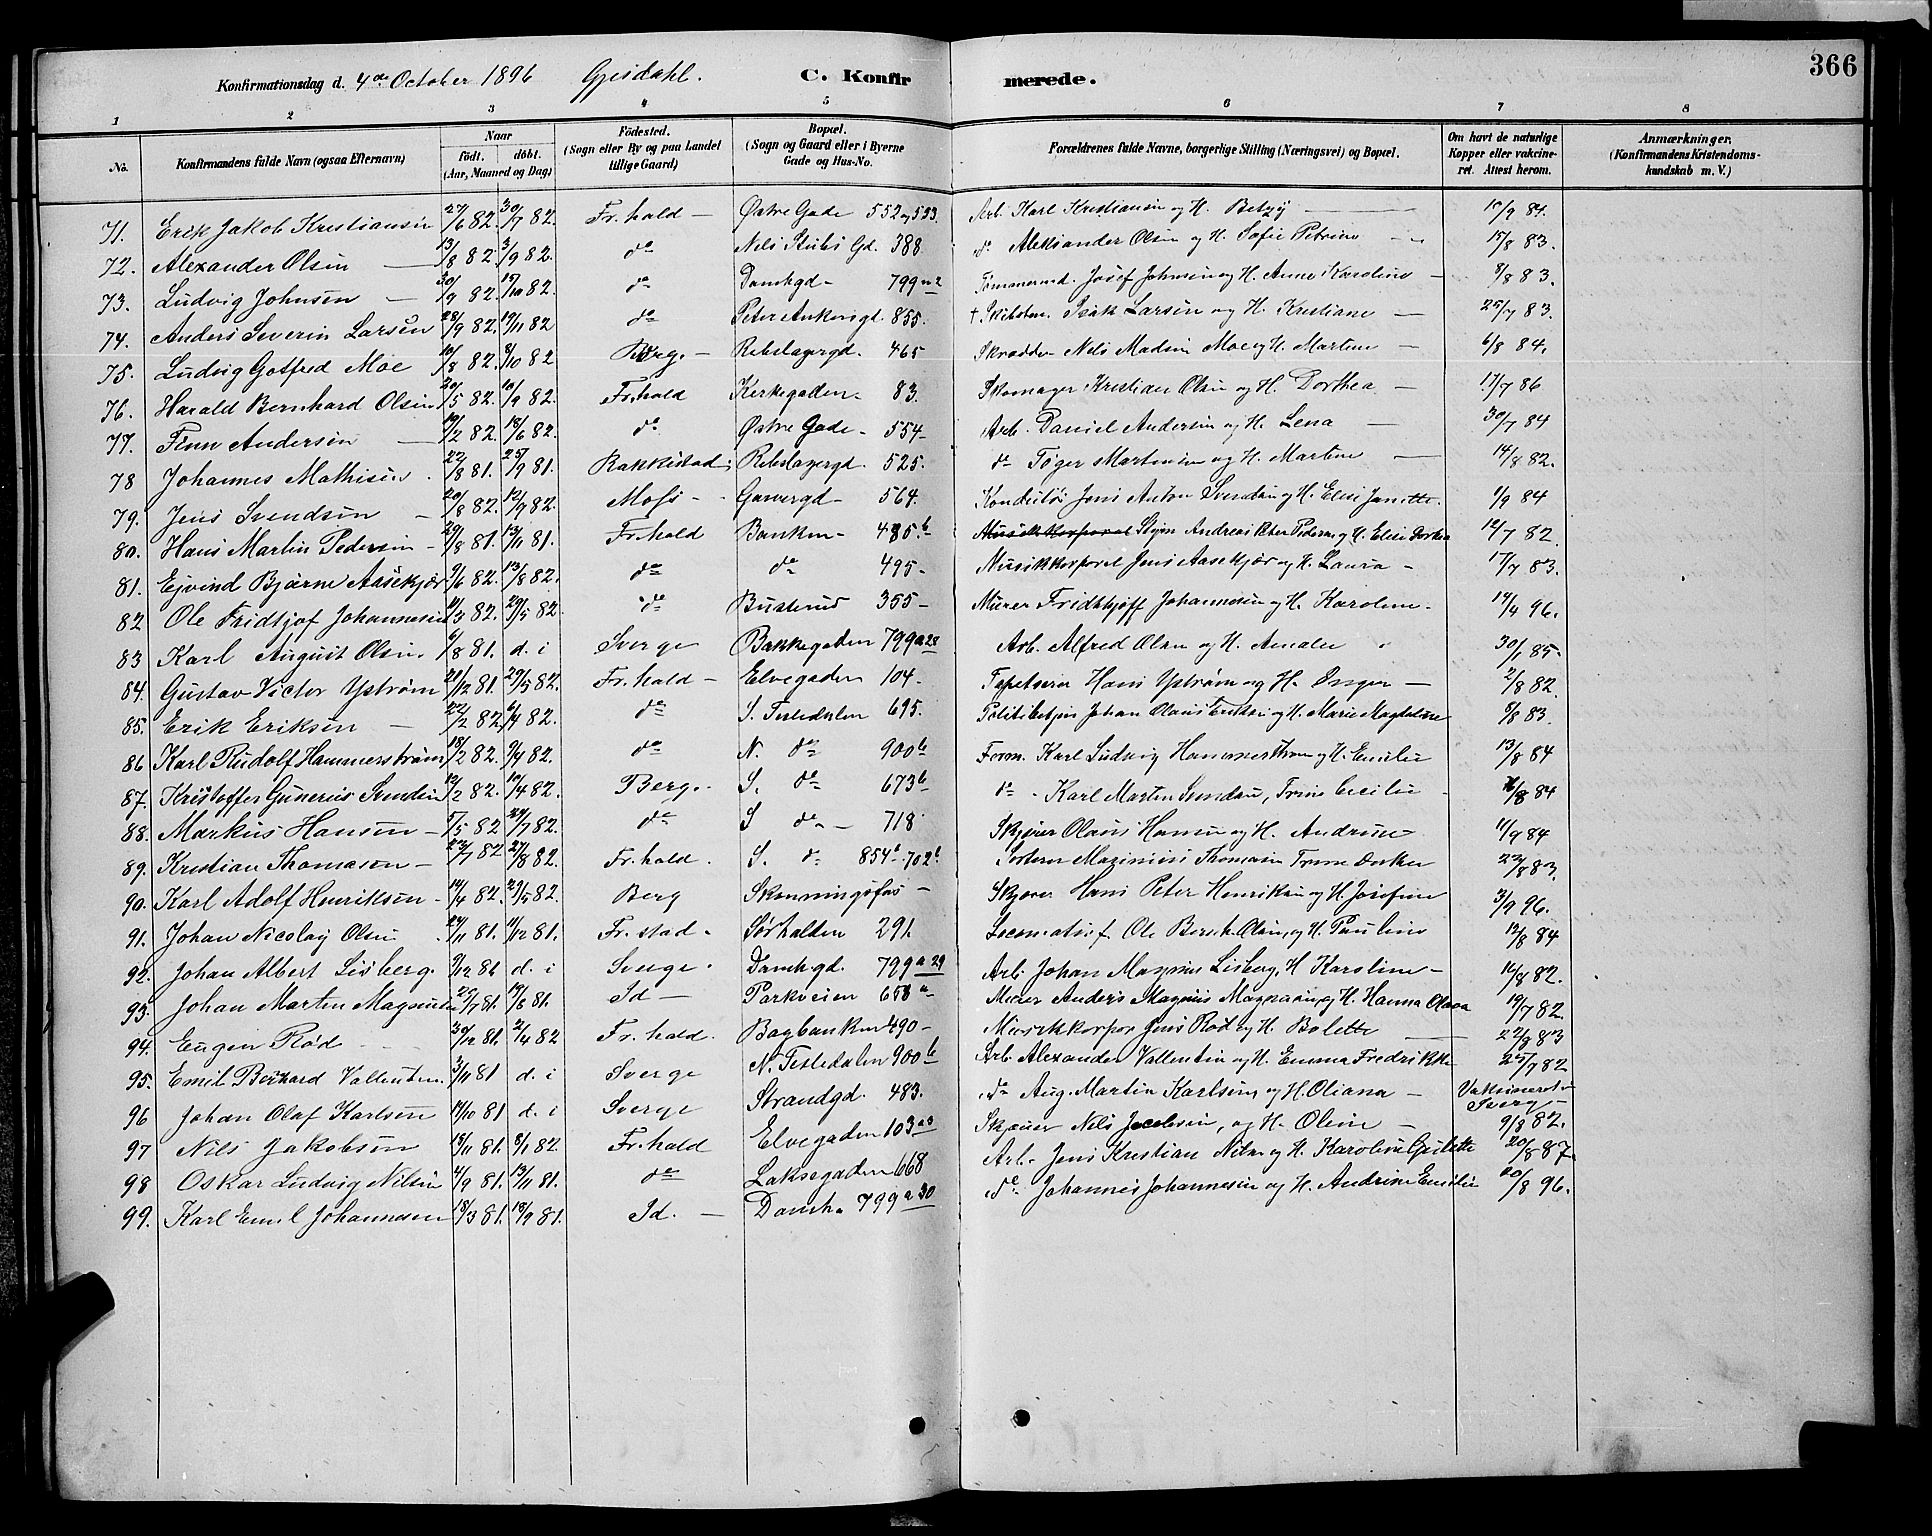 366
Konfirmationsdag d. 4de October 1896 Gjesdahl. C. Konfirmerede.
1 2 3 4 5 6 7 8
No. Konfirmandens fulde Navn (ogsaa Efternavn) Naar födt. döbt. (Aar, Maaned og Dag) Födested. (Sogn eller By og paa Landet tillige Gaard) Bopæl. (Sogn og Gaard eller i Byerne Gade og Hus-No. Forældrenes fulde Navne, borgerlige Stilling (Næringsvei) og Bopæl. Om havt de naturlige Kopper eller vakcineret. Attest herom. Anmærkninger. (Konfirmandens Kristendomskundskab m. V.)
71. Erik Jakob Kristiansen 27/6 82. 30/7 82. Fr.hald - Østre Gade 552 og 553. Arb. Karl Kristiansen og H. Betzy 84.
72. Alexander Olsen 13/8 82. 3/9 82. do Nils Stubs Gd. 388. do Aleksander Olsen og H. Sofie Petrine 15/8 83.
73. Ludvig Johnsen 82. 15/10 82. do Damhgd. 799 Tømmermd. Josef Johnsen og H. Anne Karoline 8/8 83.
74. Anders Severin Larsen 28/9 82. 19/11 82 do Peter Ankersgd. 855. Isak Larsen og H. Kristiane 25/7 83.
75. Ludvig Gotfred Moe 10/8 82. 8/10 82 Berg. Rebslagergd. 465 Skrædder Nils Madsen Moe og H. Martine 6/8 84.
76. Harald Bernhard Olsen 20/5 82. 10/9 82. Fr.hald Kirkegaden 83. Skomager Kristian Olsen og H. Dorthea 17/7 86
77. Finn Andersen 82. 18/6 82. do Østre Gade 554 Arb. Daniel Andersen og H. Lena 30/7 84
78 Johannes Mathisen 22/8 81. 25/9 81. Rakkestad Rebslagergd. 525. do Martinsen og H. Martine 14/8 82.
79. Jens Svendsen 20/8 82. 12/9 82. Moss Garvergd. 564. Konduktør Jens Anton Svendsen og H. Elise Janette 1/9 84
80. Hans Martin Pedersen 29/8 81. 13/11 81. Fr.hald Banken 485.b Musikkorporal Andreas Peter Pedersen og H. Elise Dorthea 12/7 82.
81. Ejvind Bjarne Aasekjær 9/6 82. 13/8 82. do do 495 Musikkorporal Jens Aasekjær og H. Laura 17/7 83.
82 Ole Fridtjof Johannesen 11/3 82. 29/5 82. do Busterud 355 Murer Fridthjoff Johannesen og H. Karoline 14/4 96.
83 Karl August Olsen. 6/8 81. d. i Sverge Bakkegaden 799a28 Arb. Alfred Olsen og H. Amalie 85.
84. Gustav Victor Ystrøm 21/12 81. 29/5 82. Fr.hald Elvegaden 104. Tapetserer Hans Ystrøm og H. Inger 2/8 82.
85. Erik Eriksen 22/2 82. 6/4 82. do S. Tistedalen 695. Politibetjen Johan Olaus Eriksen og H. Marie Magdalene 5/8 83.
86 Karl Rudolf Hammerstrøm 18/2 82. 9/4 82. do N. do 900b Form. Karl Ludvig Hammerstrøm og H. Emilie 13/8 84
87. Kristoffer Gunerius Svendsen 12/2 82. 10/4 82. Berg. S. do 673b do Karl Martin Svendsen, Trine Cecilie 84
88. Markus Hansen 5/5 82 23/7 82. do S do 718 Skjærer Olaus Hansen og H. Andrine 11/9 84
89. Kristian Thomasen 23/7 82 27/8 82. Fr.hald. S. do 854b. 702b. Sorterer Thomasen Trine Dorthea 22/8 83.
90. Karl Adolf Henriksen 14/4 82. 29/5 82. Berg Skonningsfos Skjærer Hans Peter Henriksen og H. Josefine 3/9 96.
91. Johan Nicolay Olsen 24/11 81. 11/12 81. Fr.stad. Sørhalden 291 Locomotivf. Ole Bernh. Olsen, og H. Pauline 12/8 84
92. Johan Albert Lisberg. 9/12 81 d. i Sverge. Damhgd. 799a29 Arb. Johan Magnus Lisberg, H Karoline 14/8 82.
93. Johan Martin Magnusen 25/7 81. 14/8 81. Id Parkveien 658a Murer Anders Magnus Magnusen, og H. Hanna Olava 19/7 82.
94. Eugen Rød 30/12 81. 2/4 82 Fr.hald. Bagbanken 490 Musikkorpor. Jens Rød og H. Bolette 22/9 83
95. Emil Bernhard Vallentin. 3/11 81 d. i Sverge N. Tistedalen 900b Arb. Alexander Vallentin og H. Emma Fredrikke 25/7 82
96 Johan Olaf Karlsen 14/10 81 d. i Sverge Strandgd. 483. do Aug. Martin Karlsen, og H. Oliana Vaksineret i Sverg
97 Nils Jakobsen 15/11 81. 8/1 82. Fr.hald Elvegaden 103 Skjærer Nils Jacobsen, og H. Oline 9/8 82.
98 Oskar Ludvig Nilsen 4/9 81. 13/11 81. do Laksegaden 668 Arb. Jens Kristian Nilsen og H. Karoline Gulette 20/8 87.
99. Karl Emil Johannesen 18/3 81. 18/9 81. Id. Damh. 799a30 do Johannes Johannesen og H. Andrine Emilie 20/8 96.